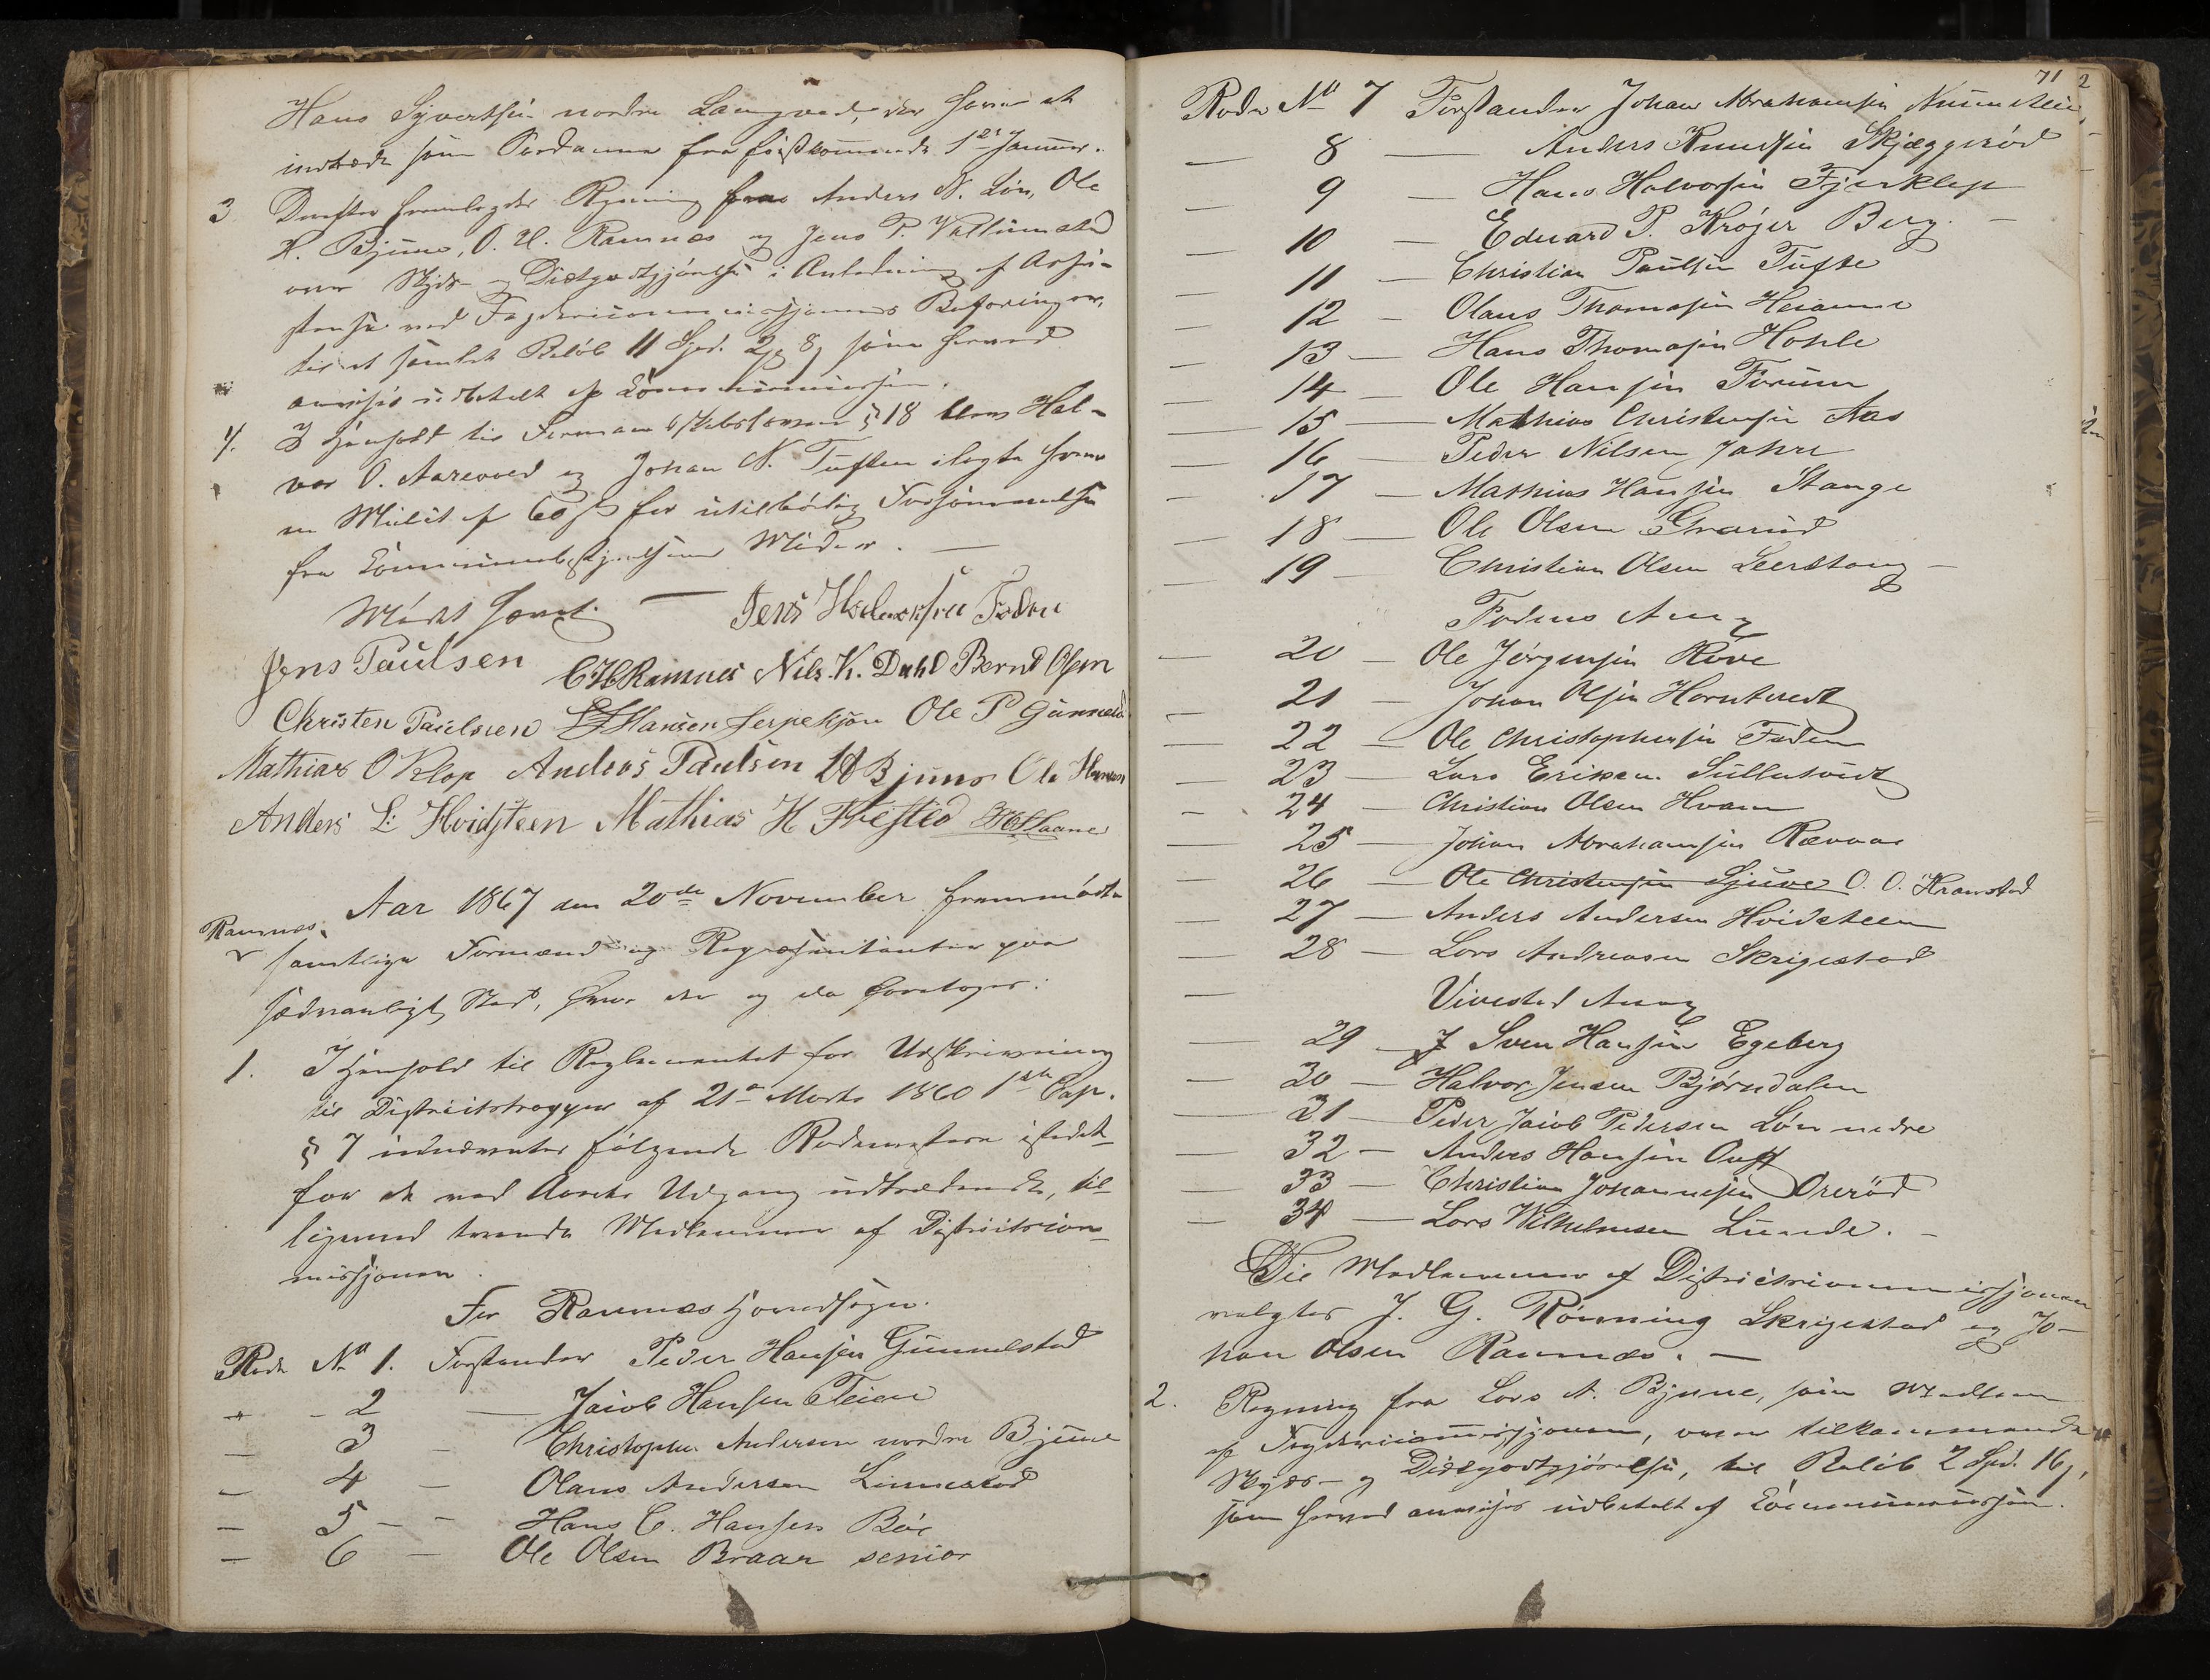 Hans Syvertsen nordre Langved, der haver at
indtræde som Ordanna fra førstkommende 1ste Januar.
3 Derefter fremlagdes Regning fra Anders N. Lin, Ole
H. Bjune, O. H. Ramnæs og Jens P. Vallumstad
over Skyds- og Diætgodtgjørelse i Anledning af Assi-
stense ved Fogdericommissjonens Beforinger,
til et samlet Beløb 11 Spd. 2 8 som herved
anvises udbetalt af Communecassen.
4. I Henhold til Formandskabsloven § 18 blev Hal-
vor O. Aarevoed og Johan N. Tuften ilagte hver
en Mulct af 60 s for utilbørlig Forsømmelse
fra Communebestyrelsens Møder. —
Mødet hævet. — Jens Halvorsen Foden
Jens Paulsen C H Ramnes Nils. K. Dahl Bernt Olsen
Christen Paulsen Hansen Jerpekjøn Ole P Gunnestad
Mathias O Klop Andreas Paulsen Bjune Ole Hansen
Anders L: Hvidsteen Mathias H Frested
Aar 1867 den 20de November fremmødte
Ramnæs.
samtlige Formænd og Repræsentanter paa
sædvanligt Sted, hvor der og da foretoges:
1. I Henhold til Reglementet for Udskrivning
til Districtstropper af 21de Marts 1860 1ste Cap.
§ 7 udnævntes følgende Rodemestere istedet-
for de ved Aarets Udgang udtrædende, til-
ligemed tvende Medlemmer af Districtscom-
missjonen.
For Ramnæs Hovedsogn.
Rode No 1. Forstander Peder Hansen Gunnelstad
" - 2 — Jacob Hansen Teien
— 3 - Christopher Andersen nordre Bjune
— 4 - Olaus Andersen Linnestad
— 5 - - Hans C. Hansen Bøe
— 6 - Ole Olsen Braar senior
71 2
Rode No 7 Forstander Johan Abrahamsen
— 8 — Anders Knudsen Skjæggerød
— 9 — Hans Halvorsen Fjerklep
10 — Eduard P. Krøjer Berg. —
— 11 — Christian Paulsen Tufte
— 12 — Olaus Thomasen
— 13 — Hans Thomasen Hohle
— 14 — Ole Hansen Forum
— 15 — Mathias Christensen Aas
— 16 — Peder Nilsen Jahre
— 17 — Mathias Hansen Stange
— 18 — Ole Olsen Graarud
— 19 — Christian Olsen Leerstang —
Fodens Anx
— 20 — Ole Jørgensen Rove
— 21 — Johan Olsen Horntvedt
— 22 — Ole Christophersen Foden
— 23 — Lars Eriksen Sullutvedt
— 24 — Christian Olsen Hvaam
— 25 — Johan Abrahamsen Rævaas
— 26 — Ole Christensen Gjuve O. O. Kramstad
— 27 — Anders Andersen Hvidsteen
— 28 — Lars Andreasen Skrigestad
— Vivestad Anx
— 29 — Sven Hansen Egeberg
— 30 — Halvor Jensen Bjørndalen
— 31 — Peder Jacob Pedersen Løn nedre
— 32 — Anders Hansen
— 33 — Christian Johannesen Orerød
— 34 — Lars Wilhelmsen Lunde. —
Til Medlemmer af Districtscommissjonen
valgtes J. G. Rønning Skrigestad og Jo-
han Olsen Ramnæs. —
2. Regning fra Lars A. Bjune, som Medlem
af Fogdericommissjonen, over tilkommende
Skyds- og Diætgodtgjørelse, til Beløb 2 Spd. 16 s,
som herved anvises udbetalt af Communecassen.